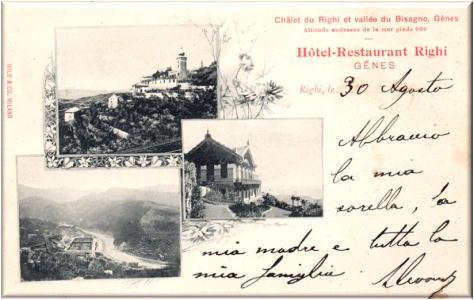 Châlet du Righi et vallée du Bisagno, Gênes
Altitude audessus de la mer pieds 999
Hôtel-Restaurant Righi
GÊNES
Righi, le 30 Agosto
WILD & CO. MILANO
Abbraccio
la mia
sorella, la
mia madre e tutta la
mia famiglia